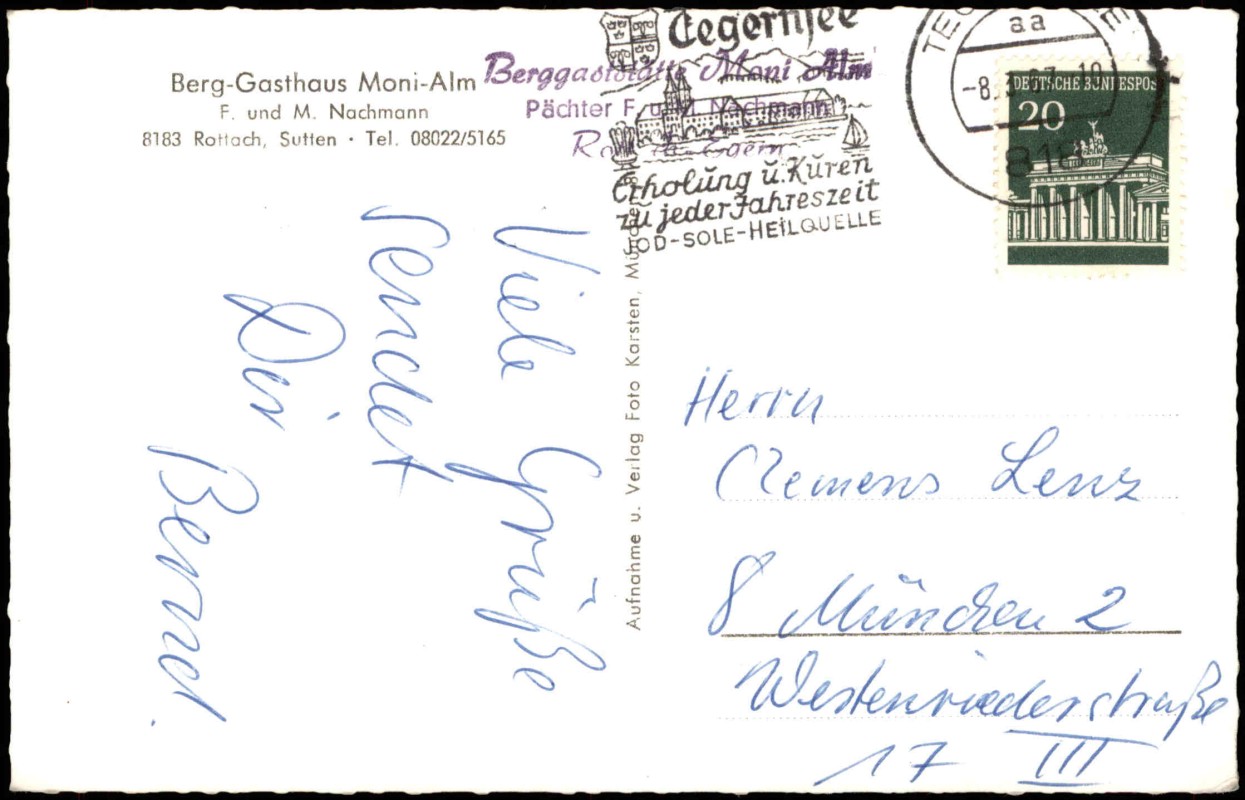 Berg-Gasthaus Moni-Alm
F. und M. Nachmann
8183 Rottach, Sutten · Tel. 08022/5165
Berggaststätte Moni Alm
Pächter F. u. M. Nachmann
Egern
Tegernsee
Erholung u. Kuren
zu jeder Jahreszeit
JOD-SOLE-HEILQUELLE
aa
818
DEUTSCHE BUNDESPOST
20
Viele Grüße
sendet
Dir
Bernd.
Aufnahme u. Verlag Foto Karsten,
Herrn
Clemens Lenz
8 München 2
Westenriederstraße
17 III